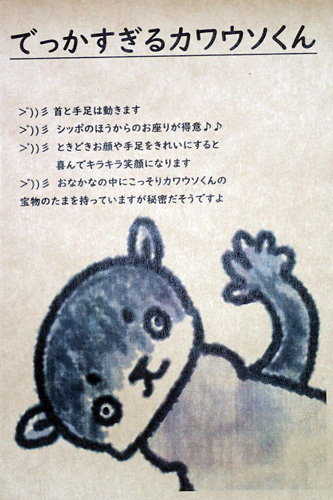 でっかすぎるカワウソくん
>゜))彡 首と手足は動きます
>゜))彡 シッポのほうからのお座りが得意♪♪
>゜))彡 ときどきお顔や手足をきれいにすると
喜んでキラキラ笑顔になります
>゜))彡 おなかなの中にこっそりカワウソくんの
宝物のたまを持っていますが秘密だそうですよ